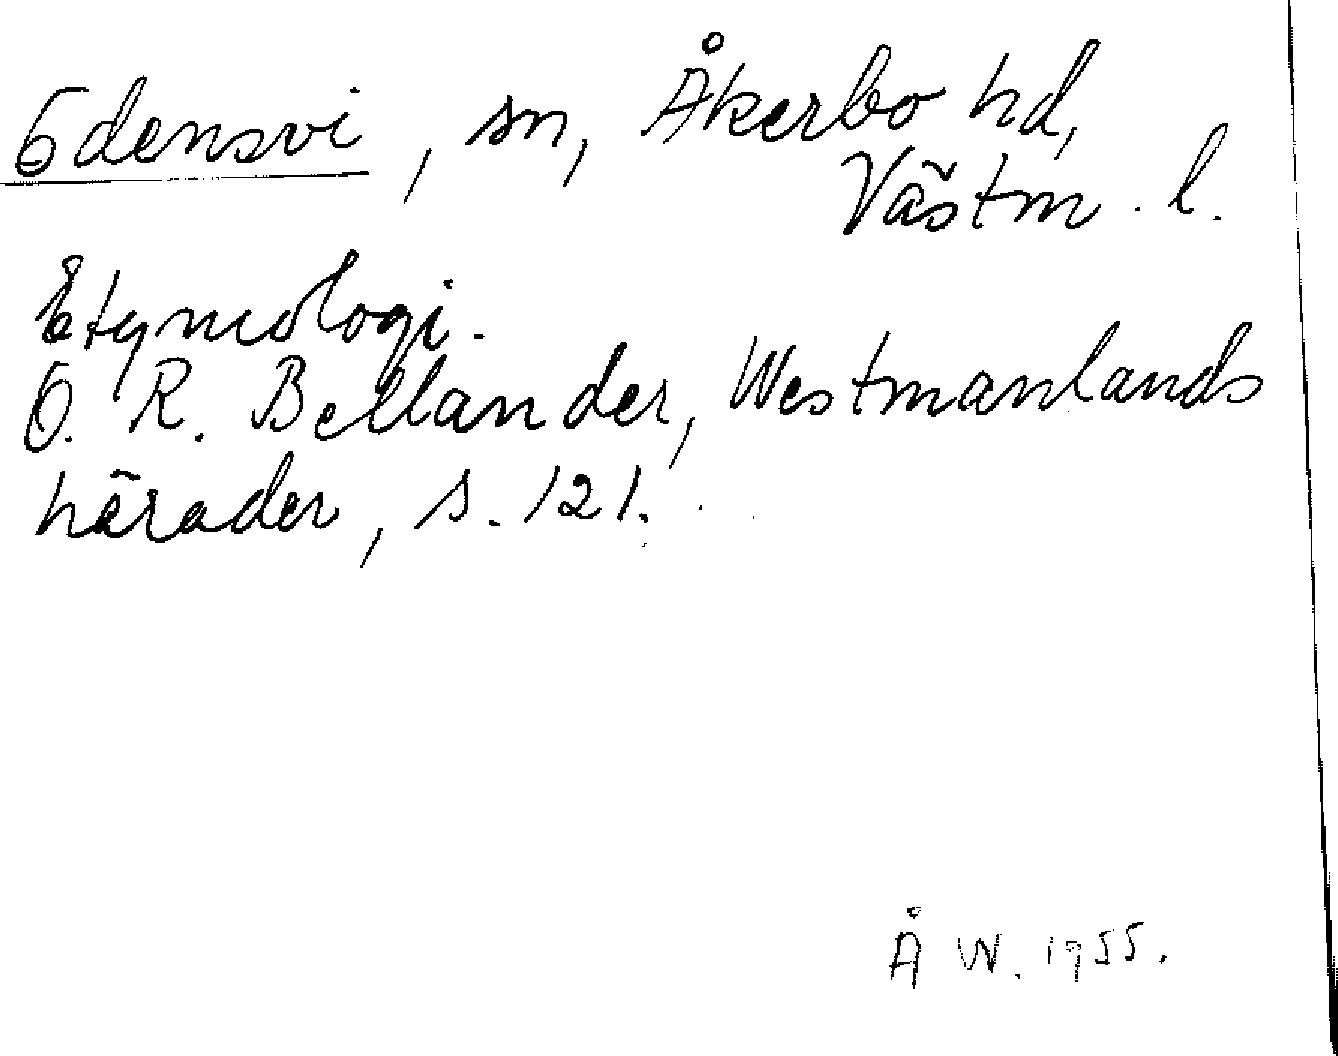 Odensvi, sn, Åkerbo hd,
Västm. l.
Etymologi.
O. R. Bellander, Westmanlands
härader, s. 121.
Å W. 1955.